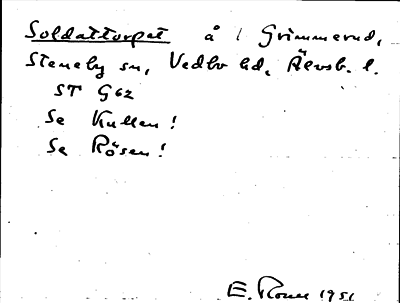 Soldattorpet å 1 Grimmerud,
Steneby sn, Vedbo hd, Älvsb. l.
ST G62
Se Kullen!
Se Rösen!
E. Rome 1951